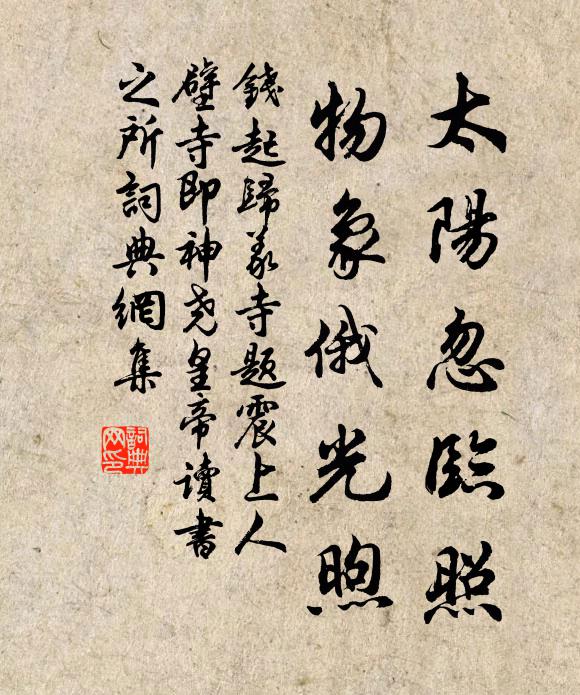 太陽忽臨照
物象俄光煦
錢起歸義寺題震上人
壁寺即神堯皇帝讀書
之所詞典網集
詞典网印